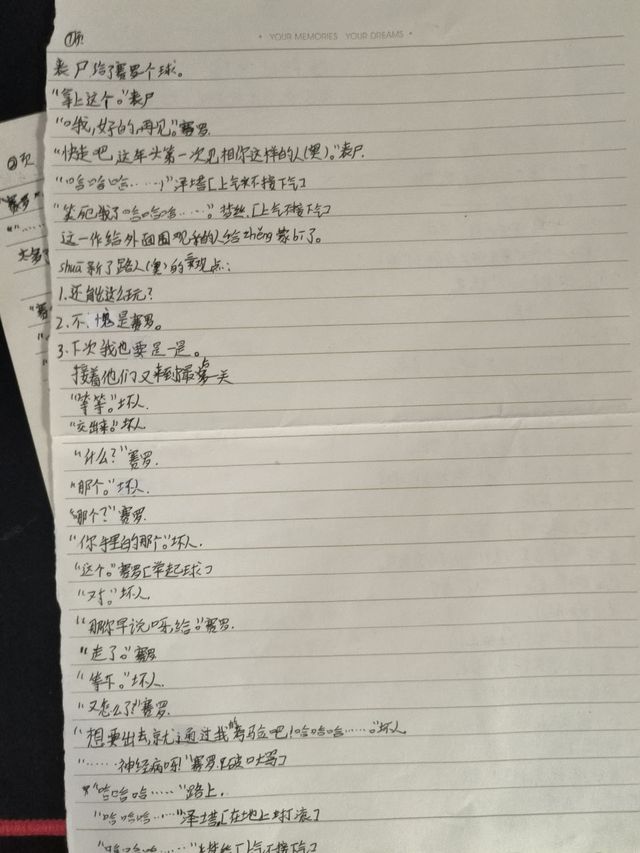 ①页
• YOUR MEMORIES YOUR DREAMS •
丧尸给了赛罗个球。
"拿上这个。"丧尸
"哦,好的,再见。"赛罗.
"快走吧,这年头第一次见相你这样的人(奥)。"丧尸.
"哈哈哈……,"泽塔[上气不接下气]
"笑死我了哈哈哈……。"梦丝.[上气不接下气]
这一作给外面围观的人给zhěng蒙bī了。
shuā新了路人(奥)的观点:
1.还能这么玩?
2.不愧是赛罗。
3.下次我也要是一是。
接着他们又来到最第一关
"等等。"坏人.
"交出来。"坏人
"什么?"赛罗.
"那个。"坏人.
"哪个?"赛罗.
"你手里的那个。"坏人.
"这个。"赛罗[举起球]
"对。"坏人.
"那你早说呀,给。"赛罗.
"走了。"赛罗
"等下。"坏人.
"又怎么了?"赛罗.
"想要出去,就通过我的考验吧!哈哈哈……。"坏人
"……神经病啊!"赛罗[破口大骂]
"哈哈哈……"路上.
"哈哈哈……"泽塔.[在地上打滚]
"哈哈哈……"梦丝[上气不接下气]
②页
"赛罗"
"……
"赛